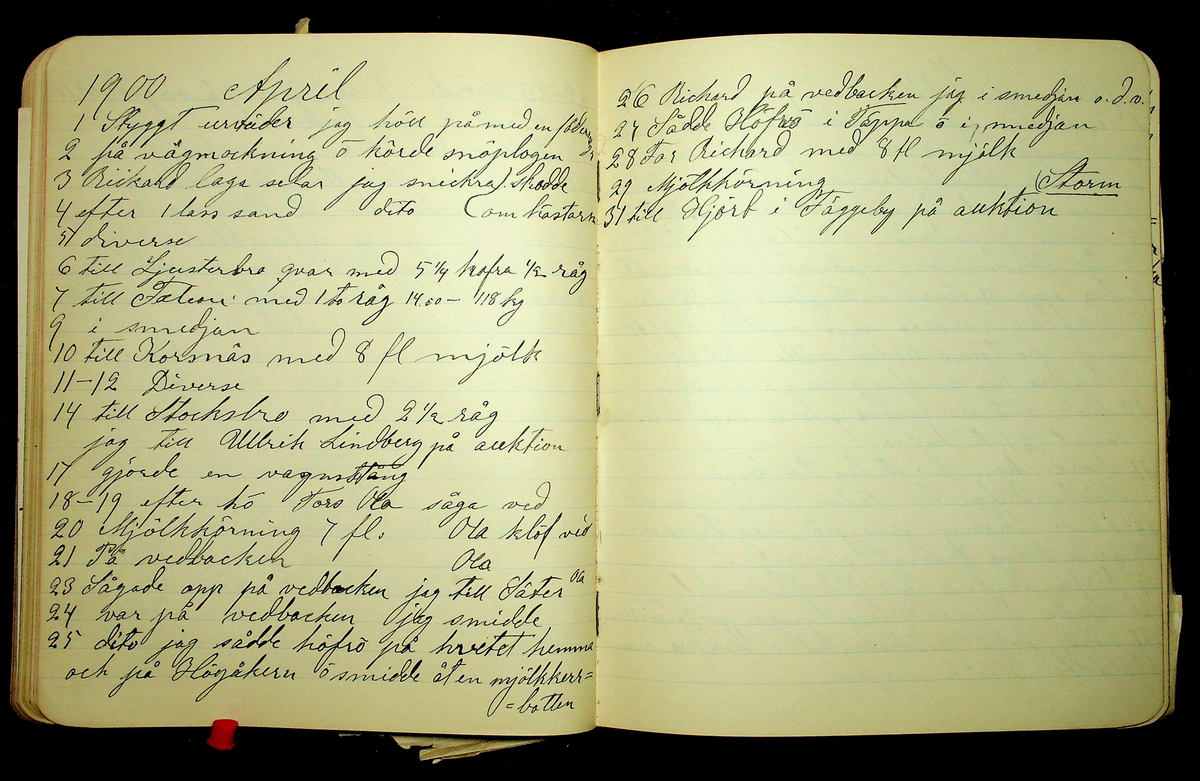 1900 April
1 Styggt urväder jag höll på med en
2 på vägmockning o körde snöplogen
3 Rickard laga selar jag snickra) skodde
4 efter 1 lass sand dito (om hästarn
5 diverse
6 till Ljusterbro qvar med 5 1/4 hafra 1/2 råg
7 till med 1 to råg 14.00 – 118 kg
9 i smedjan
10 till Korsnäs med 8 fl mjölk
11–12 Diverse
14 till Stocksbro med 2 1/2 råg
jag till Ullrik Lindberg på auktion
17 gjorde en vagnstång
18–19 efter hö Tors Ola såga ved
20 Mjölkkörning 7 fl. Ola klöf ved
21 På vedbacken Ola
23 Sågade opp på vedbacken jag till Säter Ola
24 var på vedbacken jag smidde
25 dito jag sådde höfrö på hvetet hemma
och på Högåkern o smidde åt en mjölkkerr=
=botten
26 Richard på vedbacken jag i smedjan o.d.v.
27 Sådde Höfrö i Täppa o i smedjan
28 Far Richard med 8 fl mjölk
29 Mjölkkörning Storm
31 till Hjört i Fäggeby på auktion